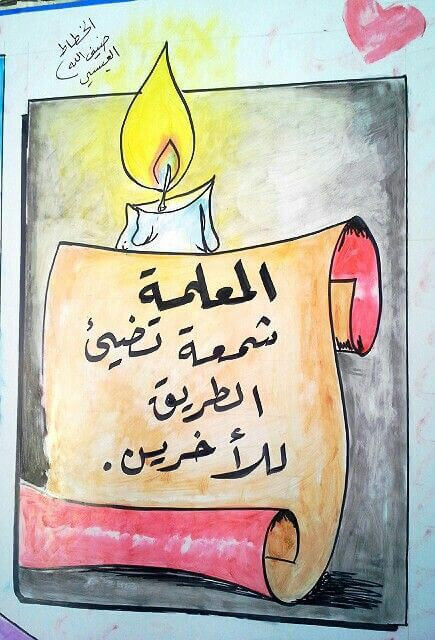 الخطاط
ضيف الله
العبسي
المعلمة
شمعة تضيئ
الطريق
للأخرين.